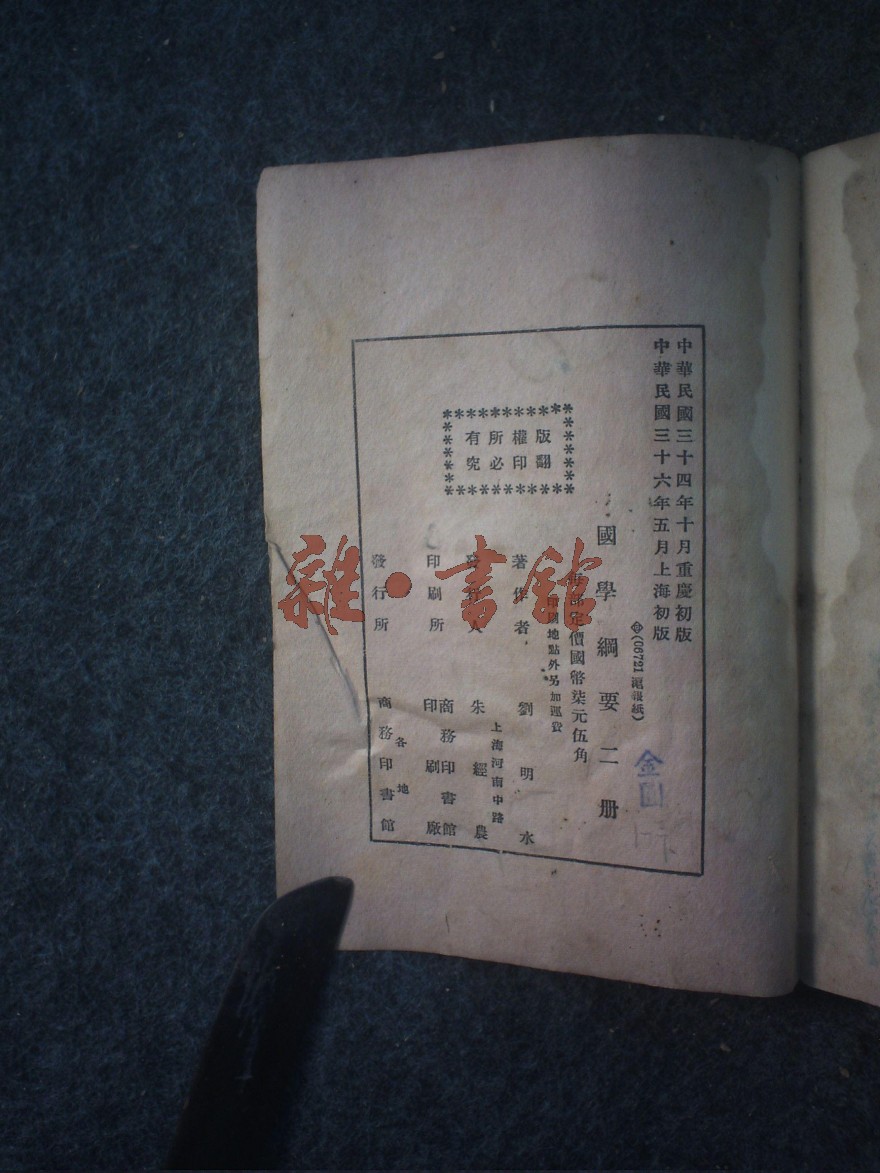 中華民國三十四年十月重慶初版
中華民國三十六年五月上海初版
(06721 滬報紙)
國學綱要二册
每部定價國幣柒元伍角
印刷地點外另加運費
版權所有
翻印必究
著作者 劉明水
發行人 朱經農
上海河南中路
印刷所 商務印書館印刷廠
發行所 各地商務印書館
金圓
雜·書館